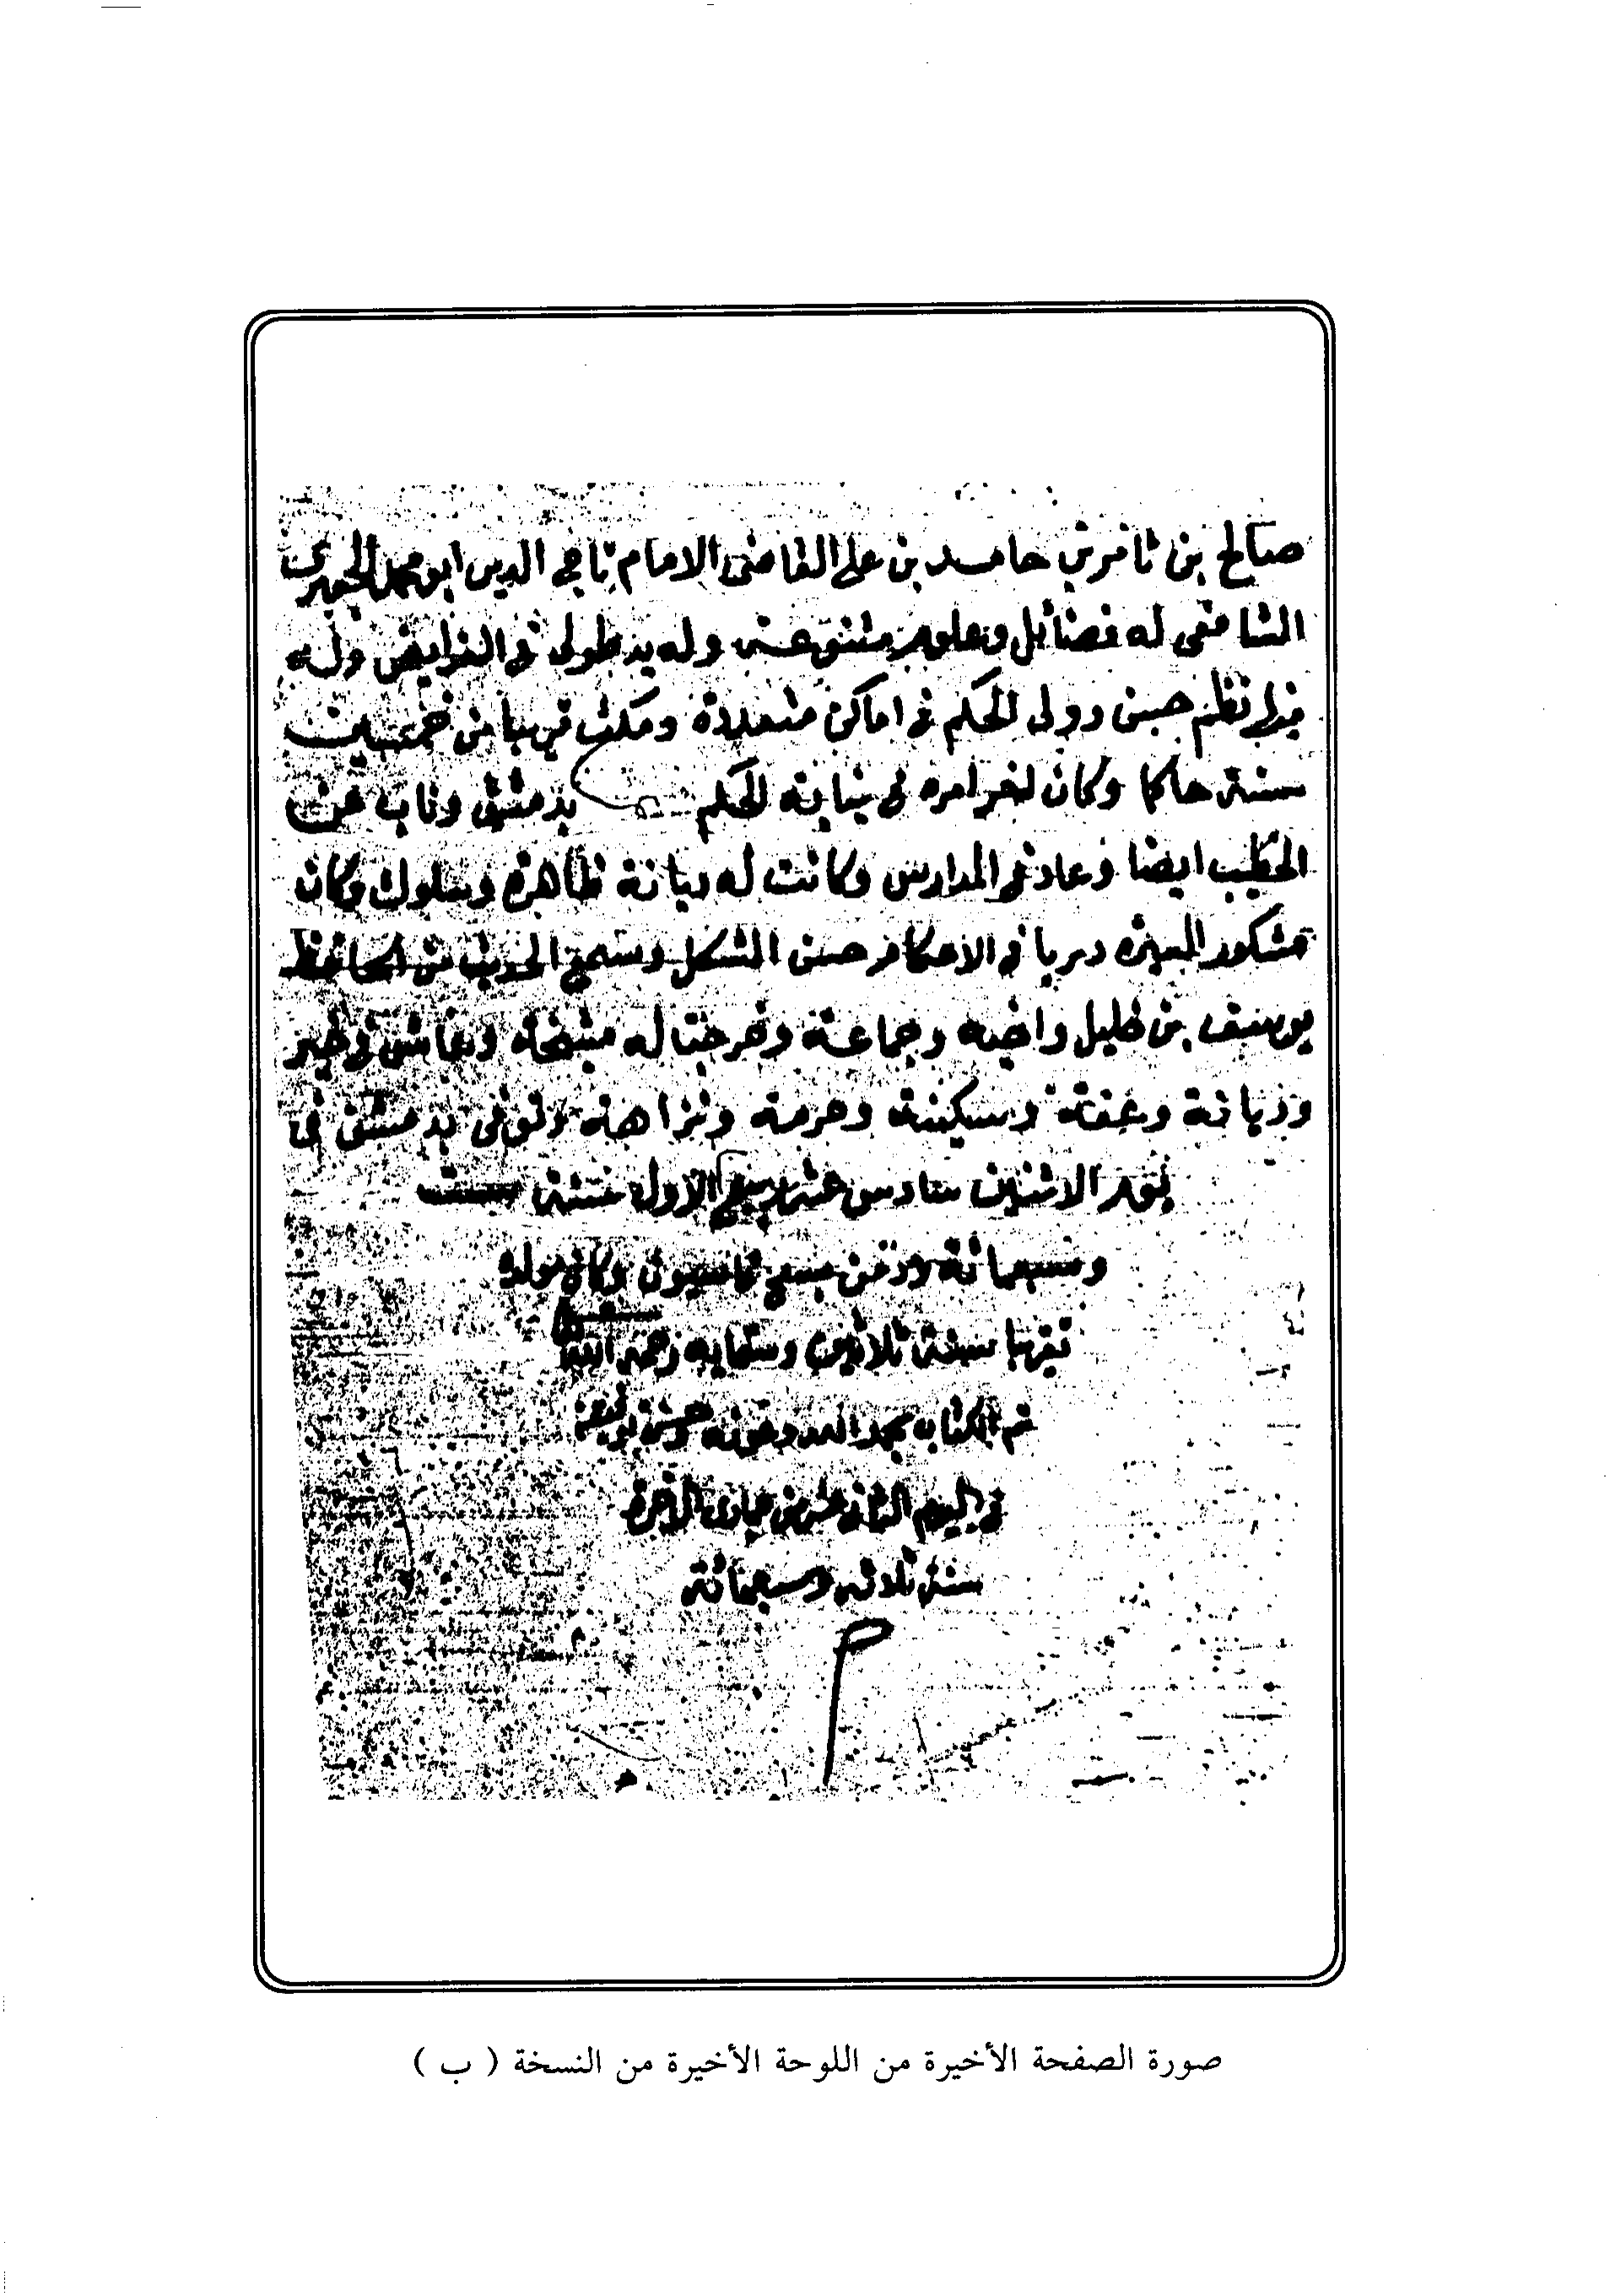 صالح بن ثامر بن حامد بن علي القاضي الامام تاج الدين ابو محمد الجعبري
الشافعي له فضائل وعلوم متنوعة وله يد طولى في الفرايض وله
فيها نظم حسن وولي الحكم في اماكن متعددة ومكث قريبا من خمسين
سنة حاكما وكان اخر امره في نيابة الحكم بدمشق وناب عن
الخطيب ايضا وعاد في المدارس وكانت له ديانة ظاهرة وسلوك وكان
مشكور السيرة دربا في الاحكام حسن الشكل وسمع الحديث من الحافظ
يوسف بن خليل واخيه وجماعة وخرجنا له مشيخة وعاش في خير
وديانة وعفة وسكينة وحرمة ونزاهة وتوفي بدمشق في
يوم الاثنين سادس عشر ربيع الاول سنة ست
وسبعمائة ودفن بسفح قاسيون وكان مولده
تقريبا سنة ثلاثين وستمايه رحمه الله
تم الكتاب بحمد الله وعونه وحسن توفيقه
في اليوم الثاني عشر من جمادى الاخرة
سنة ثلاثه وسبعمائة
م
صورة الصفحة الأخيرة من اللوحة الأخيرة من النسخة ( ب )